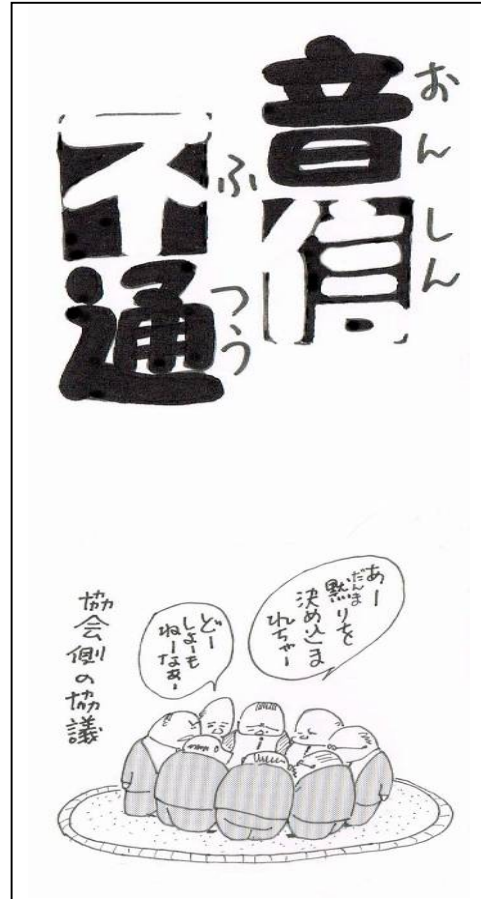 音信
おんしん
不通
ふつう
あー
黙りを
だんま
決め込ま
れちゃー
どー
しょーも
ねーなぁー
協会側の協議